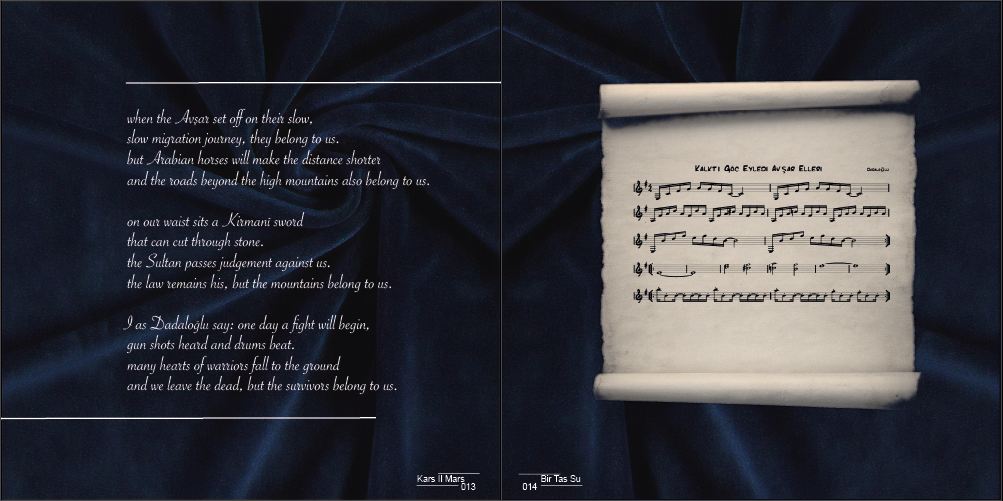 when the Avşar set off on their slow,
slow migration journey, they belong to us.
but Arabian horses will make the distance shorter
and the roads beyond the high mountains also belong to us.
on our waist sits a Kirmani sword
that can cut through stone.
the Sultan passes judgement against us.
the law remains his, but the mountains belong to us.
I as Dadaloğlu say: one day a fight will begin,
gun shots heard and drums beat.
many hearts of warriors fall to the ground
and we leave the dead, but the survivors belong to us.
Kars II Mars
013
Kalktı Göç Eyledi Avşar Elleri
Dadaloğlu
014 Bir Tas Su